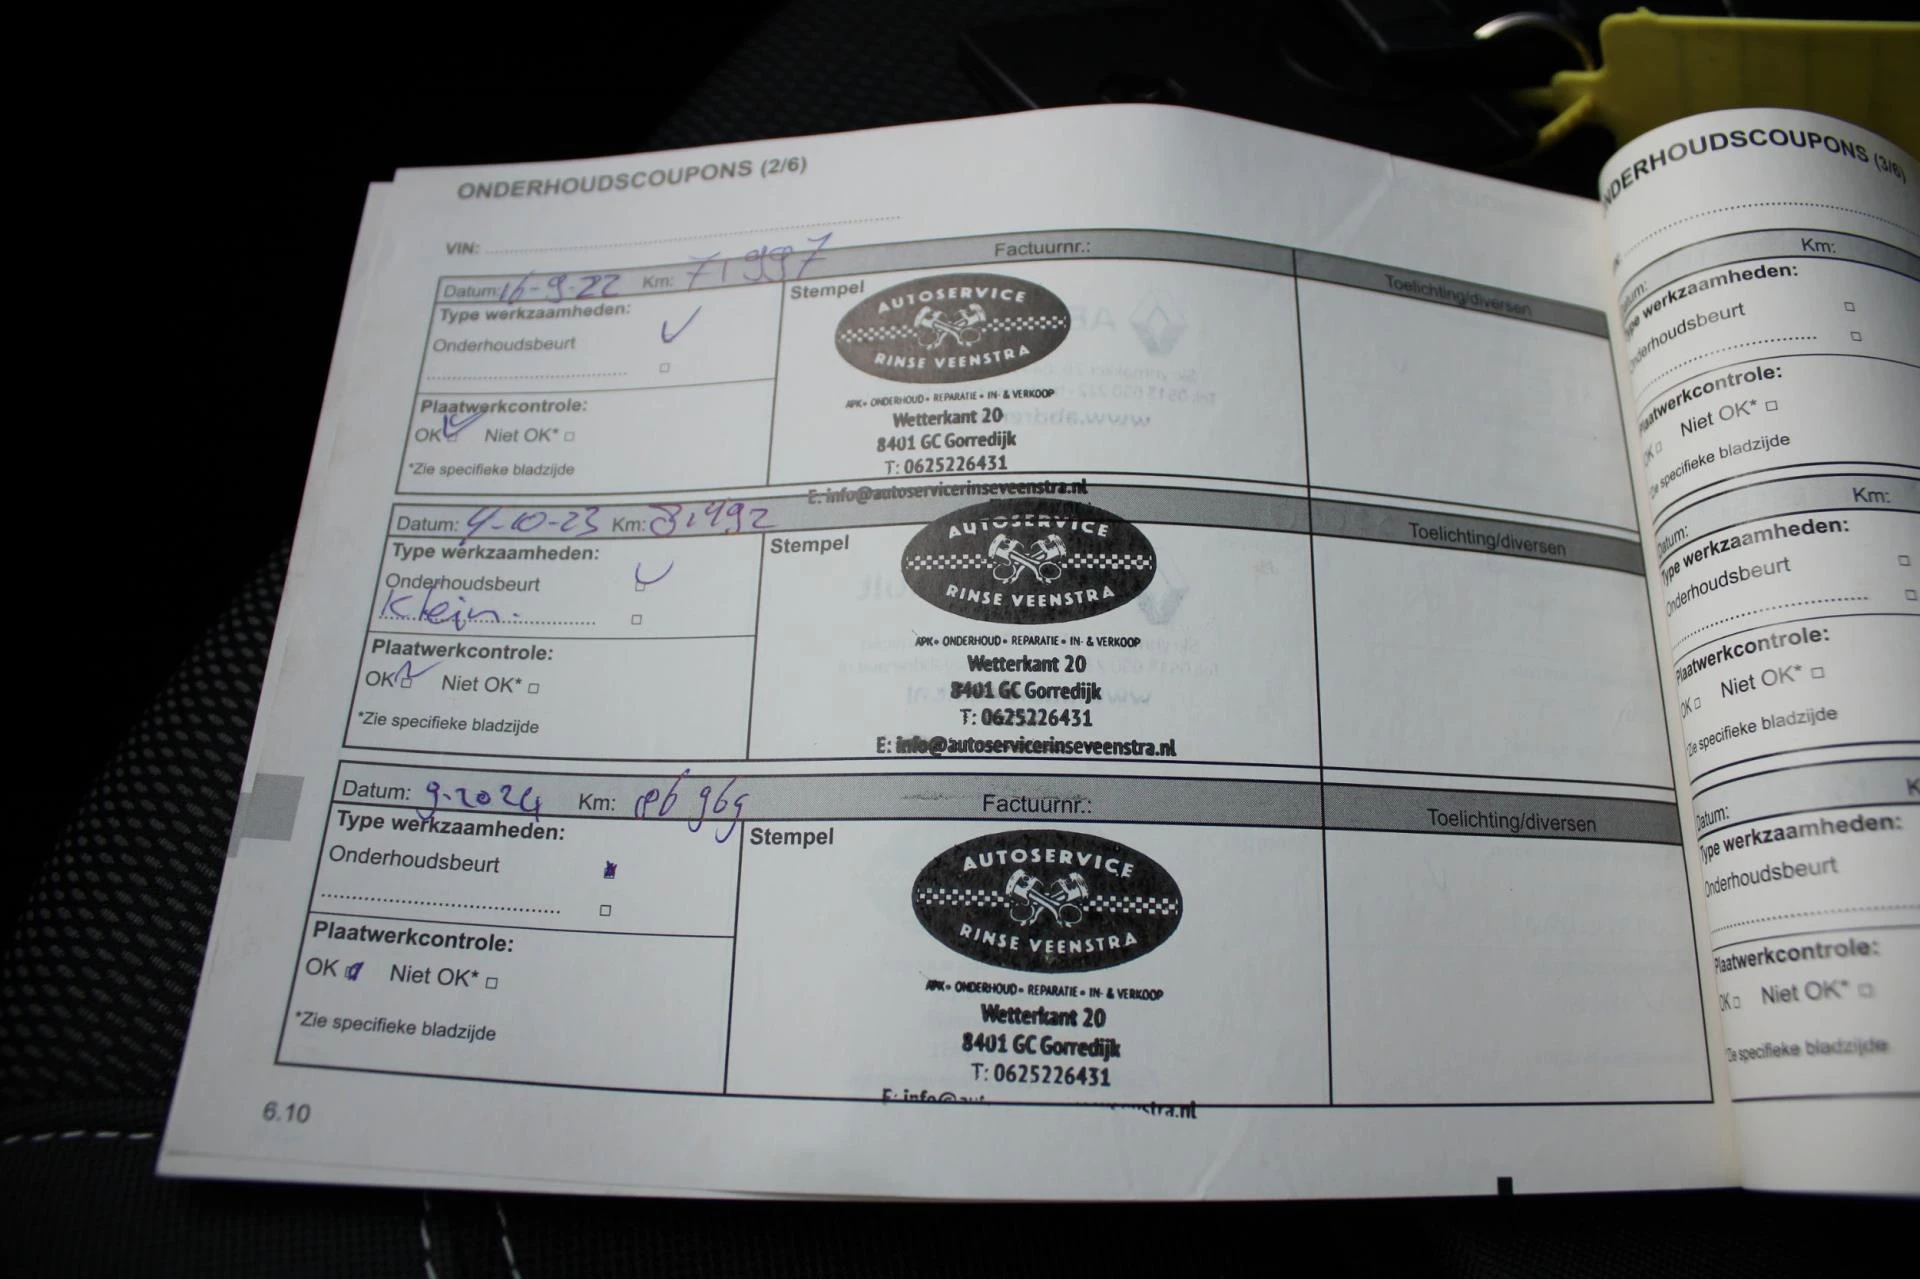 ONDERHOUDSCOUPONS (2/6)
VIN:
Datum: 16-9-22 Km: 71997 Factuurnr.: Toelichting/diversen
Type werkzaamheden:
Onderhoudsbeurt
Plaatwerkcontrole:
OK Niet OK*
*Zie specifieke bladzijde
Stempel
AUTOSERVICE
RINSE VEENSTRA
APK • ONDERHOUD • REPARATIE • IN- & VERKOOP
Wetterkant 20
8401 GC Gorredijk
T: 0625226431
E: info@autoservicerinseveenstra.nl
Datum: 4-10-23 Km: 81492 Toelichting/diversen
Type werkzaamheden:
Onderhoudsbeurt
Klein.
Plaatwerkcontrole:
OK Niet OK*
*Zie specifieke bladzijde
Stempel
AUTOSERVICE
RINSE VEENSTRA
APK • ONDERHOUD • REPARATIE • IN- & VERKOOP
Wetterkant 20
8401 GC Gorredijk
T: 0625226431
E: info@autoservicerinseveenstra.nl
Datum: 9-2024 Km: Factuurnr.: Toelichting/diversen
Type werkzaamheden:
Onderhoudsbeurt
Plaatwerkcontrole:
OK Niet OK*
*Zie specifieke bladzijde
Stempel
AUTOSERVICE
RINSE VEENSTRA
APK • ONDERHOUD • REPARATIE • IN- & VERKOOP
Wetterkant 20
8401 GC Gorredijk
T: 0625226431
6.10
NDERHOUDSCOUPONS (3/6)
Km:
atum:
ype werkzaamheden:
Onderhoudsbeurt
Plaatwerkcontrole:
OK Niet OK*
Zie specifieke bladzijde
Km:
Datum:
Type werkzaamheden:
Onderhoudsbeurt
Plaatwerkcontrole:
OK Niet OK*
Zie specifieke bladzijde
K
Datum:
Type werkzaamheden:
Onderhoudsbeurt
Plaatwerkcontrole:
OK Niet OK*
Zie specifieke bladzijde